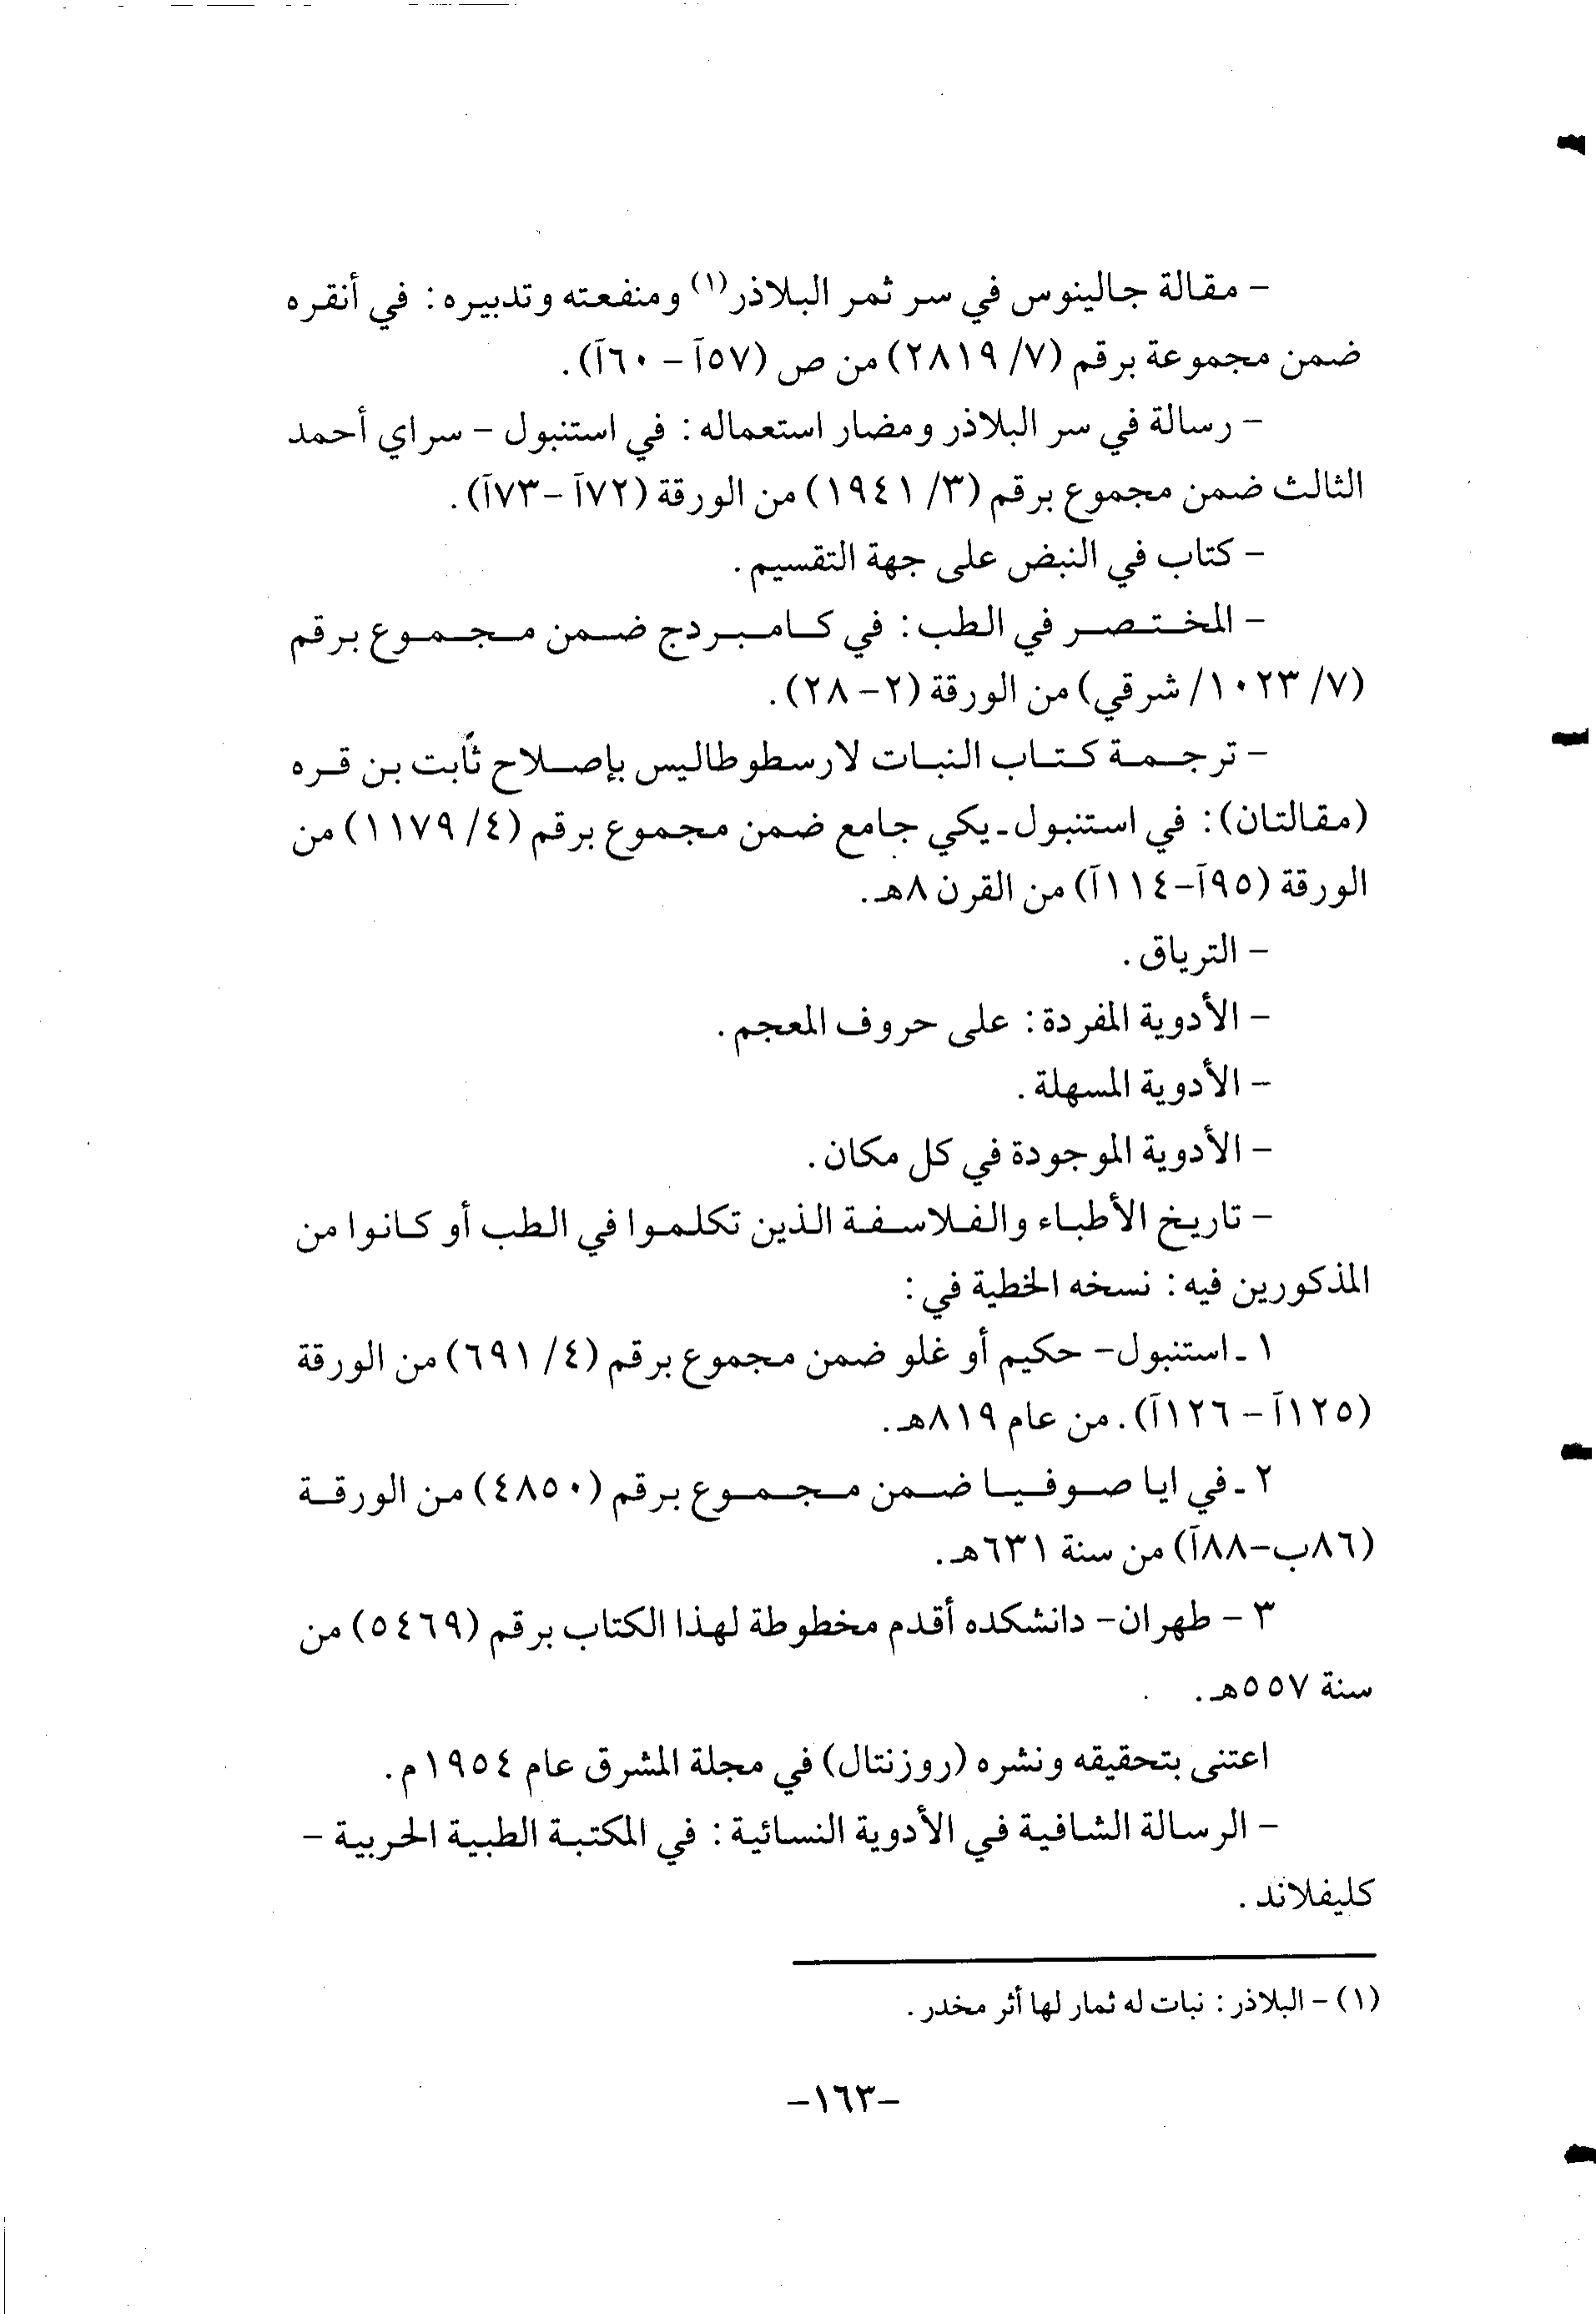 – مقالة جالينوس في سر ثمر البلاذر(١) ومنفعته وتدبيره: في أنقره
ضمن مجموعة برقم (٧/ ٢٨١٩) من ص (٥٧آ – ٦٠آ).
– رسالة في سر البلاذر ومضار استعماله: في استنبول – سراي أحمد
الثالث ضمن مجموع برقم (٣/ ١٩٤١) من الورقة (٧٢آ –٧٣آ).
– كتاب في النبض على جهة التقسيم.
– المختصر في الطب: في كامبردج ضمن مجموع برقم
(٧/ ١٠٢٣/ شرقي) من الورقة (٢– ٢٨).
– ترجمة كتاب النبات لارسطوطاليس بإصلاح ثابت بن قره
(مقالتان): في استنبول ـ يكي جامع ضمن مجموع برقم (٤/ ١١٧٩) من
الورقة (٩٥آ–١١٤آ) من القرن ٨هـ.
– الترياق.
– الأدوية المفردة: على حروف المعجم.
– الأدوية المسهلة.
– الأدوية الموجودة في كل مكان.
– تاريخ الأطباء والفلاسفة الذين تكلموا في الطب أو كانوا من
المذكورين فيه: نسخه الخطية في:
١ ـ استنبول– حكيم أو غلو ضمن مجموع برقم (٤/ ٦٩١) من الورقة
(١٢٥آ – ١٢٦آ). من عام ٨١٩هـ.
٢ ـ في ايا صوفيا ضمن مجموع برقم (٤٨٥٠) من الورقة
(٨٦ب–٨٨آ) من سنة ٦٣١هـ.
٣ – طهران– دانشكده أقدم مخطوطة لهذا الكتاب برقم (٥٤٦٩) من
سنة ٥٥٧هـ.
اعتنى بتحقيقه ونشره (روزنتال) في مجلة المشرق عام ١٩٥٤م.
– الرسالة الشافية في الأدوية النسائية: في المكتبة الطبية الحربية –
كليفلاند.
(١) – البلاذر: نبات له ثمار لها أثر مخدر.
–١٦٣–